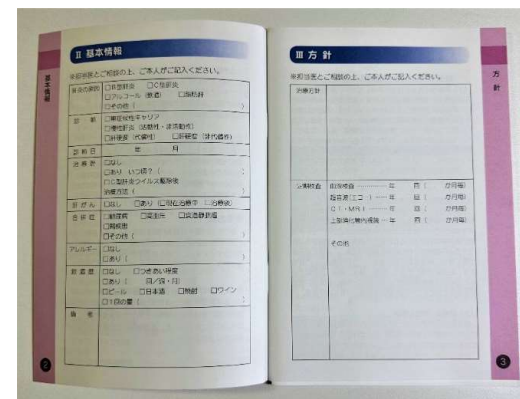 基本情報
II 基本情報
※担当医とご相談の上、ご本人がご記入ください。
肝炎の原因 □B型肝炎 □C型肝炎
□アルコール（飲酒） □脂肪肝
□その他（ ）
診 断 □無症候性キャリア
□慢性肝炎（活動性・非活動性）
□肝硬変（代償性） □肝硬変（非代償性）
診断日 年 月
治療歴 □なし
□あり いつ頃？（ ）
□C型肝炎ウイルス駆除後
治療方法（ ）
肝がん □なし □あり（□現在治療中 □治療後）
合併症 □糖尿病 □高血圧 □食道静脈瘤
□その他（ ）
アレルギー □なし
□あり（ ）
飲酒歴 □なし □つきあい程度
□あり（ 回／週・月）
□ビール □日本酒 □焼酎 □ワイン
□1回の量（ ）
備 考
2
III 方 針
※担当医とご相談の上、ご本人がご記入ください。
治療方針
定期検査 血液検査 ………… 年 回（ か月毎）
超音波（エコー）…… 年 回（ か月毎）
CT・MRI …… 年 回（ か月毎）
上部消化管内視鏡 … 年 回（ か月毎）
その他
方 針
3